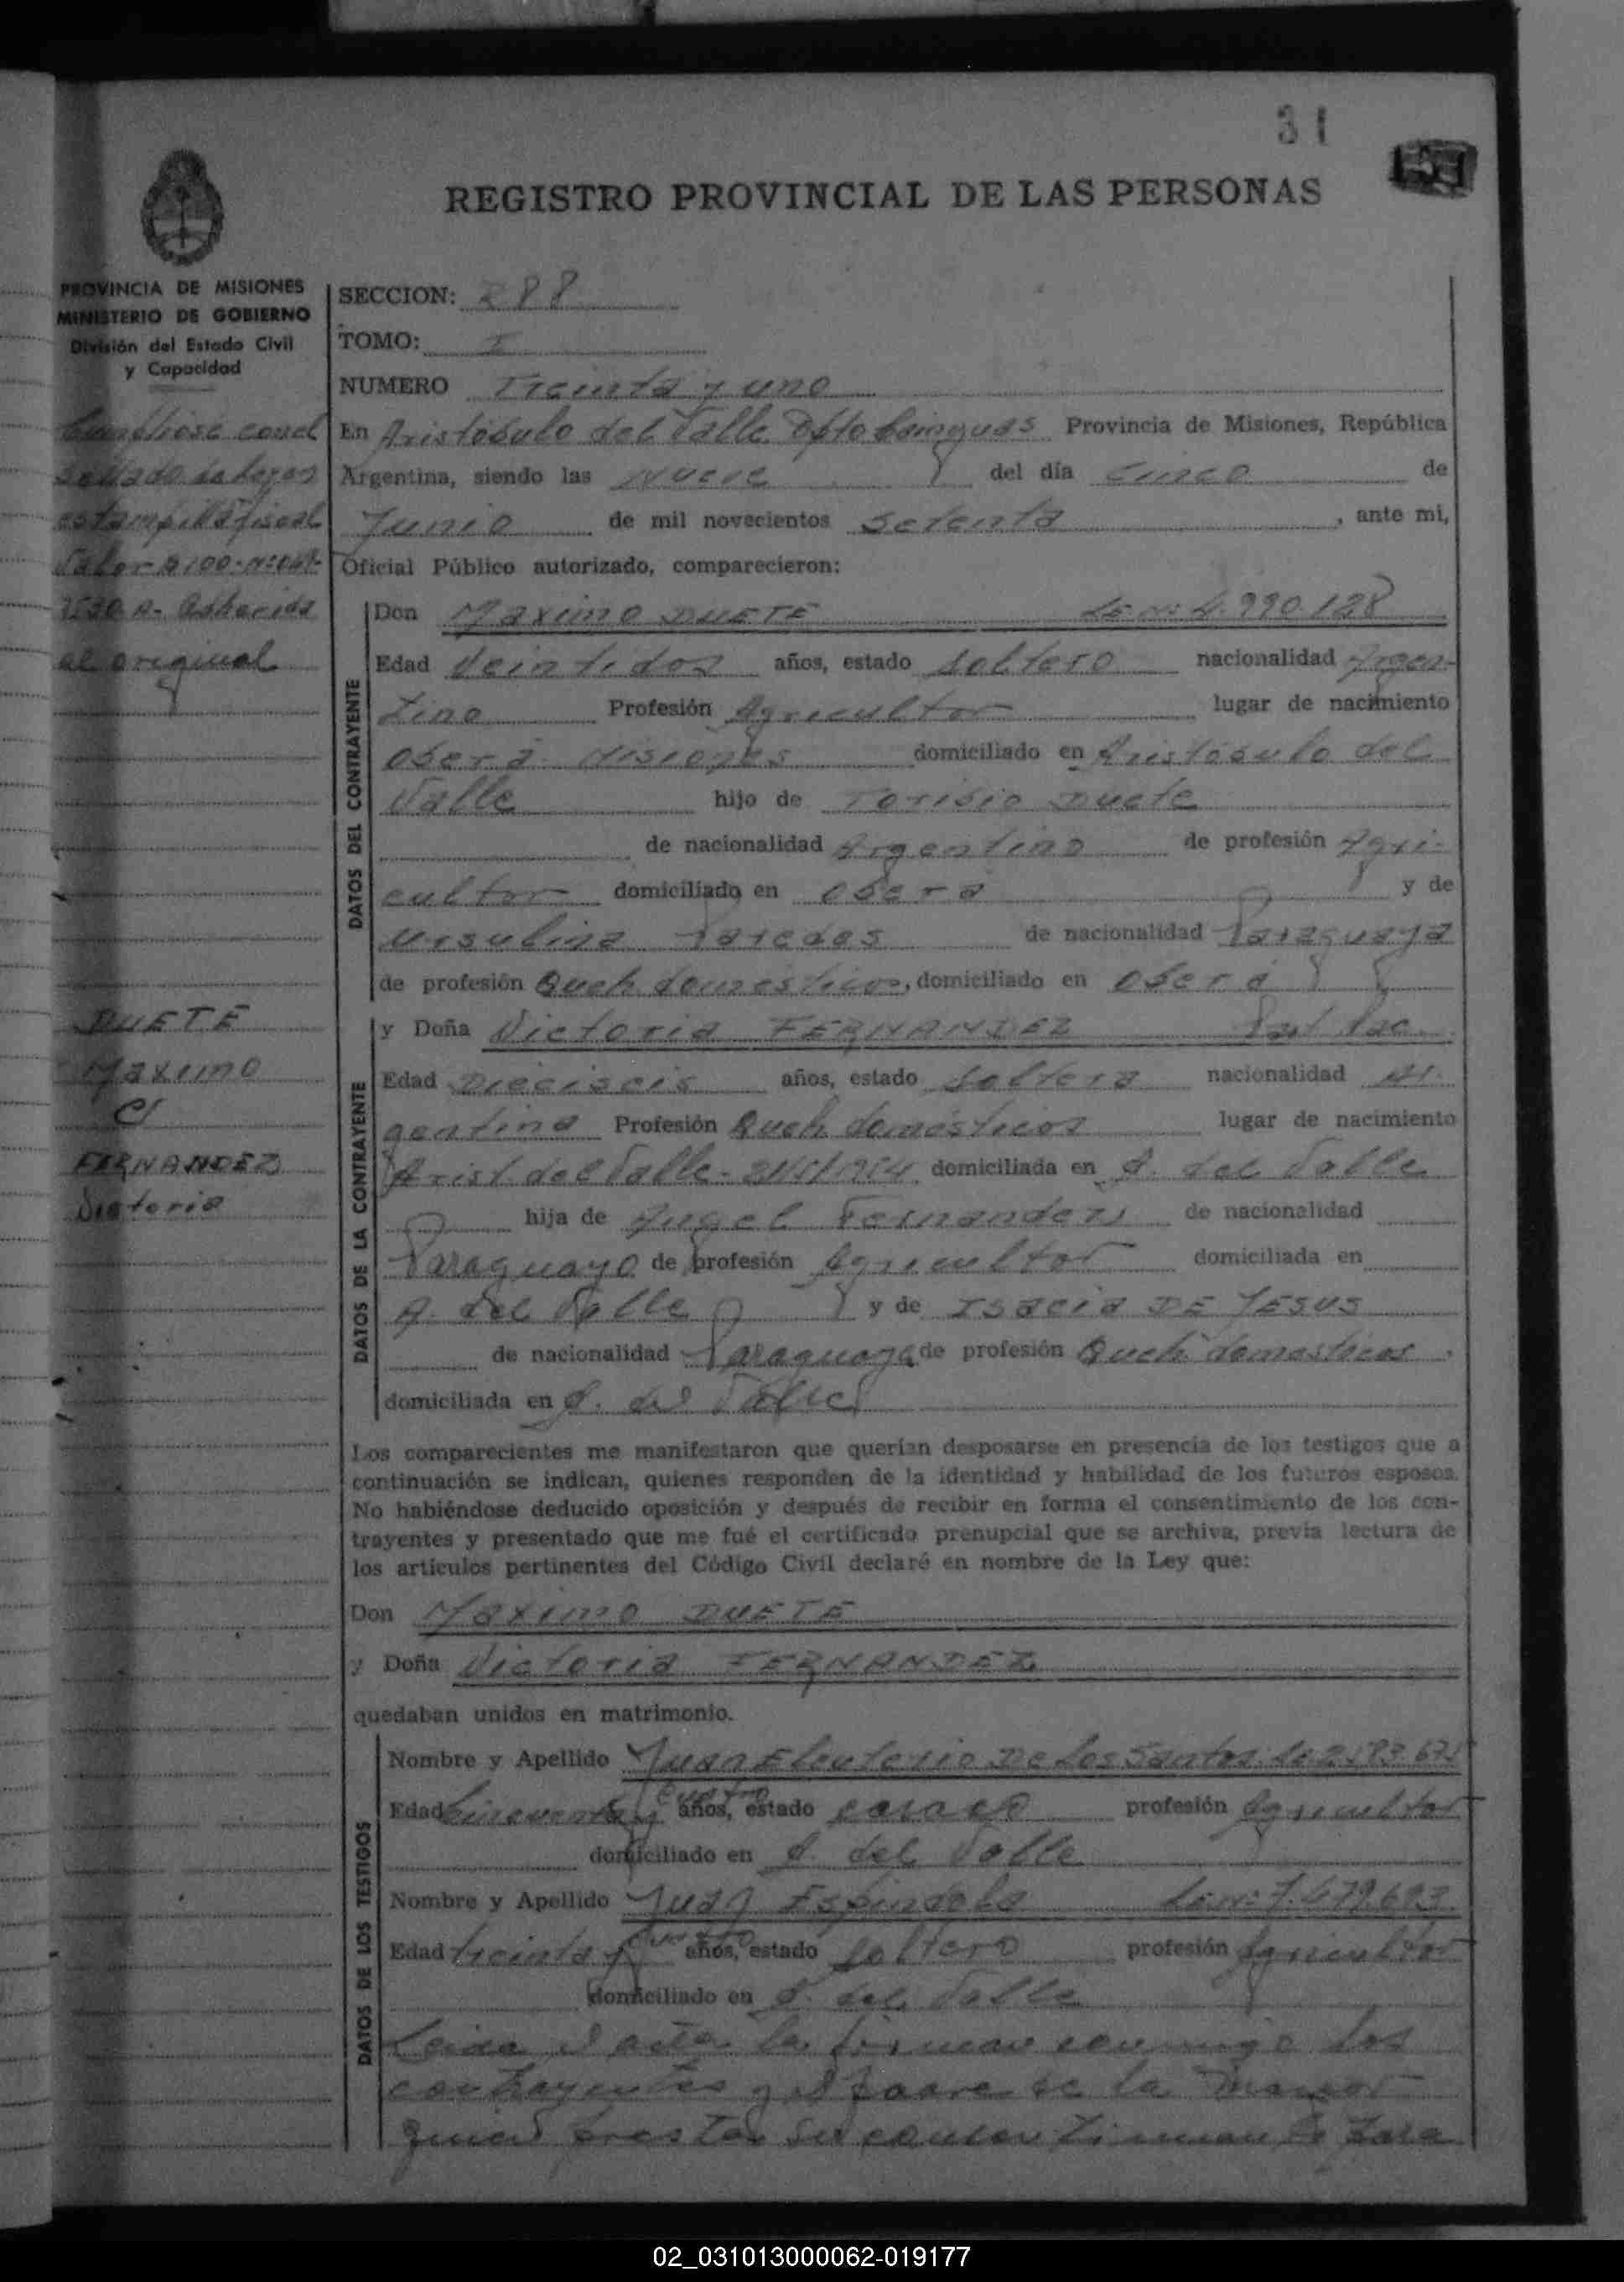 31
REGISTRO PROVINCIAL DE LAS PERSONAS
PROVINCIA DE MISIONES
MINISTERIO DE GOBIERNO
División del Estado Civil
y Capacidad
estampilla fiscal
al original
DUETE
Maximo
c/
FERNANDEZ
Victoria
SECCION: 288
TOMO: I
NUMERO Treinta y uno
En Aristóbulo del Valle Dpto Cainguas Provincia de Misiones, República
Argentina, siendo las nueve del día cinco de
Junio de mil novecientos Setenta, ante mi,
Oficial Público autorizado, comparecieron:
DATOS DEL CONTRAYENTE
Don Maximo DUETE 990.128
Edad Veintidos años, estado soltero nacionalidad Argen-
tino Profesión Agricultor lugar de nacimiento
Oberá Misiones domiciliado en Aristóbulo del
Valle hijo de Toribio Duete
de nacionalidad Argentino de profesión Agri-
cultor domiciliado en Oberá y de
Ursulina Paredes de nacionalidad Paraguaya
de profesión Queh. domésticos, domiciliado en Oberá
DATOS DE LA CONTRAYENTE
y Doña Victoria FERNANDEZ
Edad Dieciseis años, estado soltera nacionalidad Ar-
gentina Profesión Queh. domésticos lugar de nacimiento
Arist. del Valle domiciliada en A. del Valle
hija de Angel Fernandez de nacionalidad
Paraguayo de profesión Agricultor domiciliada en
A. del Valle y de Isacia DE JESUS
de nacionalidad Paraguaya de profesión Queh. domesticos.
domiciliada en A. del Valle
Los comparecientes me manifestaron que querían desposarse en presencia de los testigos que a
continuación se indican, quienes responden de la identidad y habilidad de los futuros esposos.
No habiéndose deducido oposición y después de recibir en forma el consentimiento de los con-
trayentes y presentado que me fué el certificado prenupcial que se archiva, previa lectura de
los artículos pertinentes del Código Civil declaré en nombre de la Ley que:
Don Maximo DUETE
y Doña Victoria FERNANDEZ
quedaban unidos en matrimonio.
DATOS DE LOS TESTIGOS
Nombre y Apellido Juan Eleuterio De Los Santos
Edad cincuenta y cuatro años, estado casado profesión Agricultor
domiciliado en A. del Valle
Nombre y Apellido Juan Espindola Le.Nº 7.479.693
Edad treinta y años, estado soltero profesión Agricultor
domiciliado en A. del Valle
Leida el acta la firman conmigo los
contrayentes y el padre de la menor
quien presta su consentimiento para
02_031013000062-019177